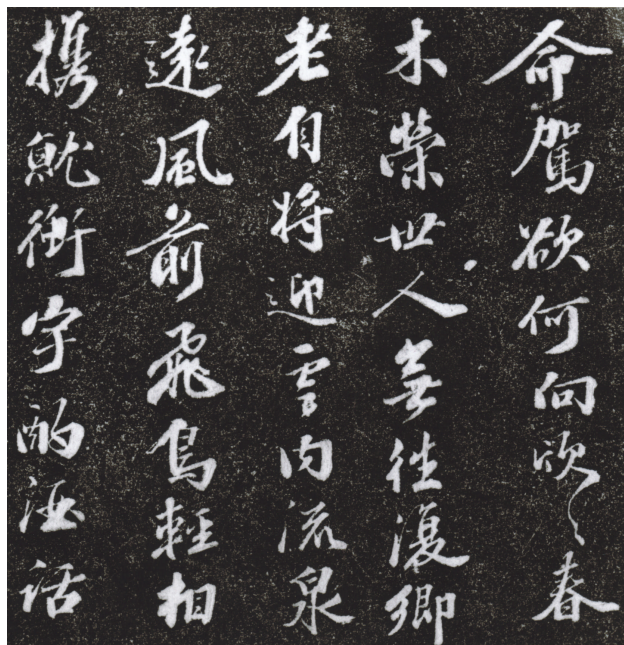 命駕欲何向欣〻春
木榮世人無往復鄉
老自将迎雲内流泉
遠風前飛鳥輕相
携就衡宇酌酒話